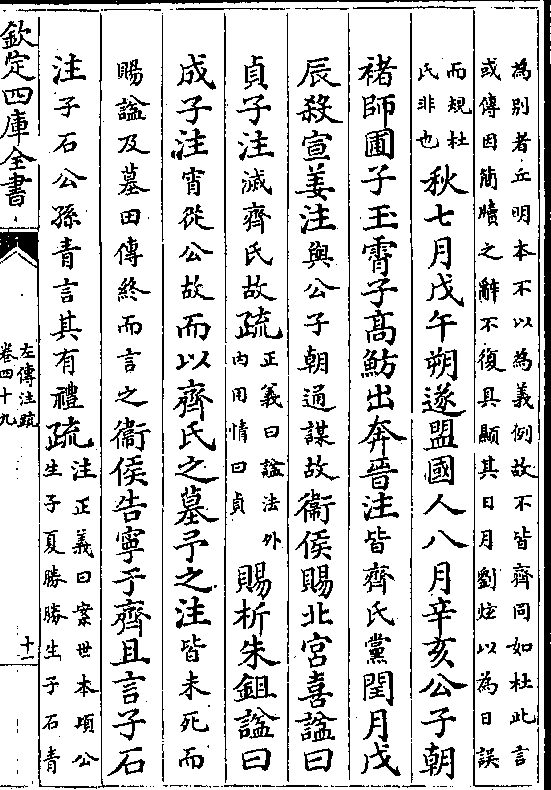 為別者丘明本不以為義例故不皆齊同如杜此言
或傳因簡牘之辭不復具顯其日月劉炫以為日誤
而規杜
氏非也
秋七月戊午朔遂盟國人八月辛亥公子朝
褚師圃子玉霄子髙魴出奔晉注皆齊氏黨閏月戊
辰殺宣姜注與公子朝通謀故衞侯賜北宮喜諡曰
貞子注滅齊氏故疏
正義曰諡法外
内用情曰貞
賜析朱鉏諡曰
成子注宵從公故而以齊氏之墓予之注皆未死而
賜諡及墓田傳終而言之衞侯告寧于齊且言子石
注子石公孫青言其有禮疏
注正義曰案世本頃公
生子夏勝勝生子石青
欽定四庫全書
左傳注疏
卷四十九
十一